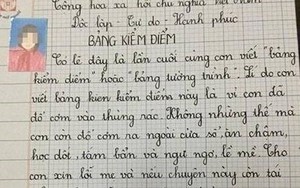 Cộng hòa xã hội chủ nghĩa việt nam
Độc lập - Tự do - Hạnh phúc
BẢNG KIỂM ĐIỂM
Có lẽ đây là lần cuối cùng con viết "bảng
kiểm điểm" hoặc "bảng tường trình". Lí do con
viết bảng kiểm điểm này là vì con đã
đổ cơm vào thùng rác. Không những thế mà
con còn đổ cơm ra ngoài cửa sổ, ăn chậm,
học dốt, tắm bẩn và ngủ ngơ, lề mề. Cho
con xin lỗi mẹ và nếu chuyện này còn tái